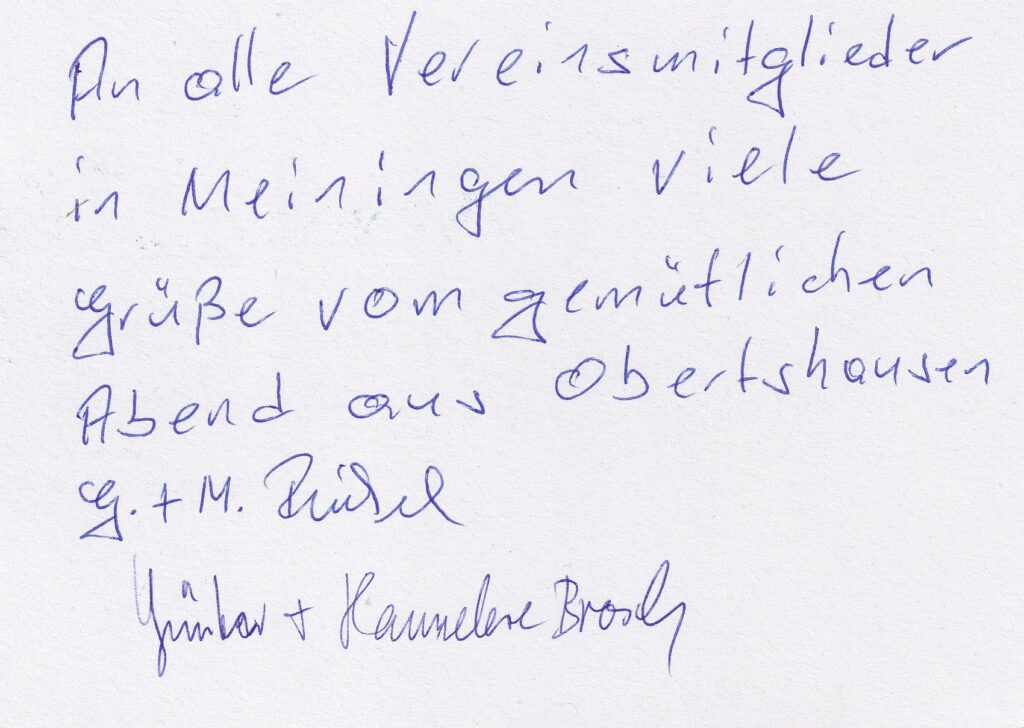 An alle Vereinsmitglieder
in Meiningen viele
Grüße vom gemütlichen
Abend aus Obertshausen
G. + M.
+ Hannelore Brosch